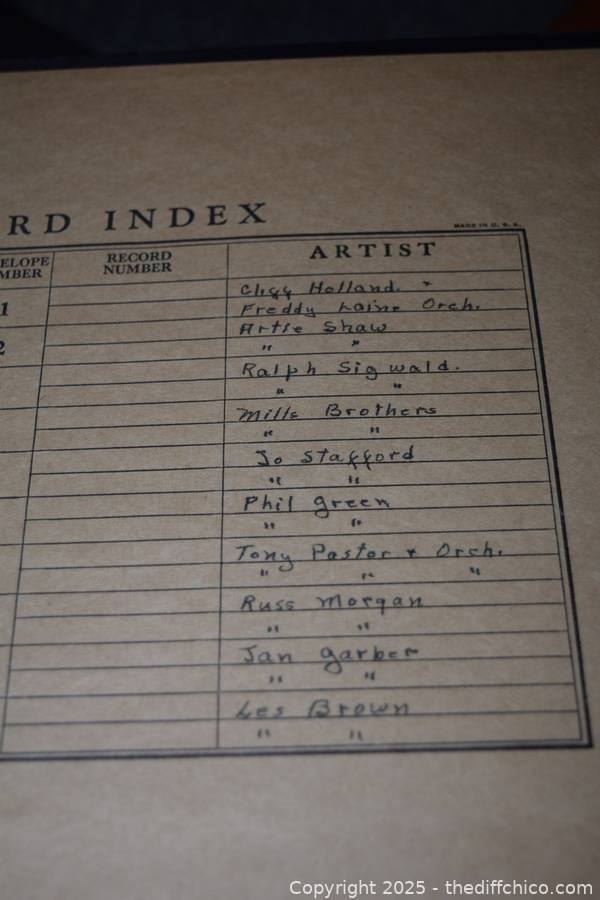 RD INDEX
MADE IN U. S. A.
ELOPE
MBER
RECORD
NUMBER
ARTIST
1
Cliff Holland. +
Freddy Laine Orch.
2
Artie Shaw
" "
Ralph Sigwald.
" "
Mills Brothers
" "
Jo Stafford
" "
Phil Green
" "
Tony Pastor + Orch.
" " "
Russ Morgan
" "
Jan Garber
" "
Les Brown
" "
Copyright 2025 - thediffchico.com